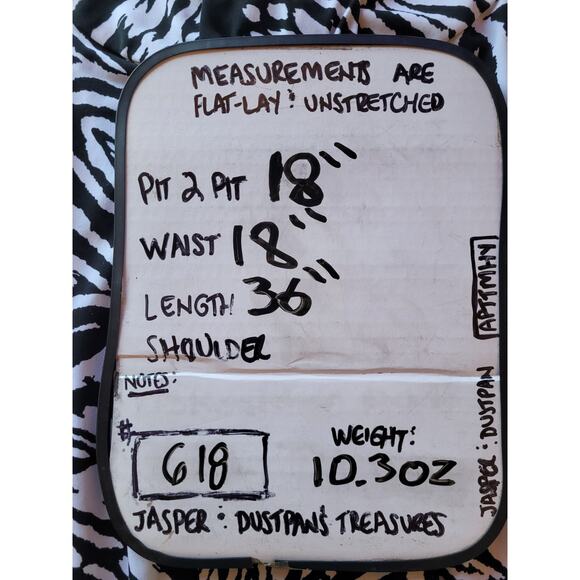 MEASUREMENTS ARE
FLAT-LAY & UNSTRETCHED
PIT 2 PIT 18"
WAIST 18"
LENGTH 36"
SHOULDER
NOTES:
#
618
WEIGHT:
10.3OZ
JASPER & DUSTPAN'S TREASURES
JASPER & DUSTPAN